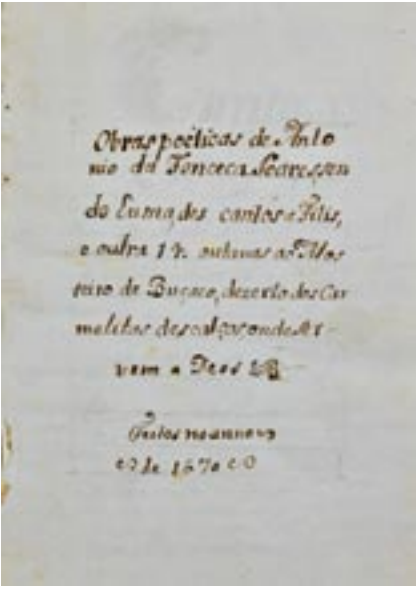 Obras poéticas de Anto
nio da Fonceca Soares, sen
do huma, des cantos a Filis,
e outra 12 outavas ao Mos
teiro de Buçaco, dezerto dos Car
melitas descalços onde ser-
vem a Deos
Feitas no anno
de 1670